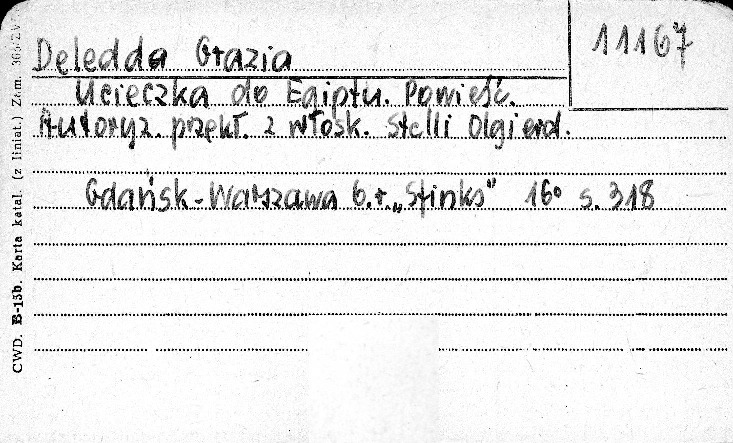 11167
Deledda Grazia
Ucieczka do Egiptu. Powieść.
Autoryz. przekł. z włosk. Stelli Olgierd.
Gdańsk-Warszawa b.r. „Sfinks" 16° s. 318
CWD. B-13b. Karta katal. (z liniat.) Zam.